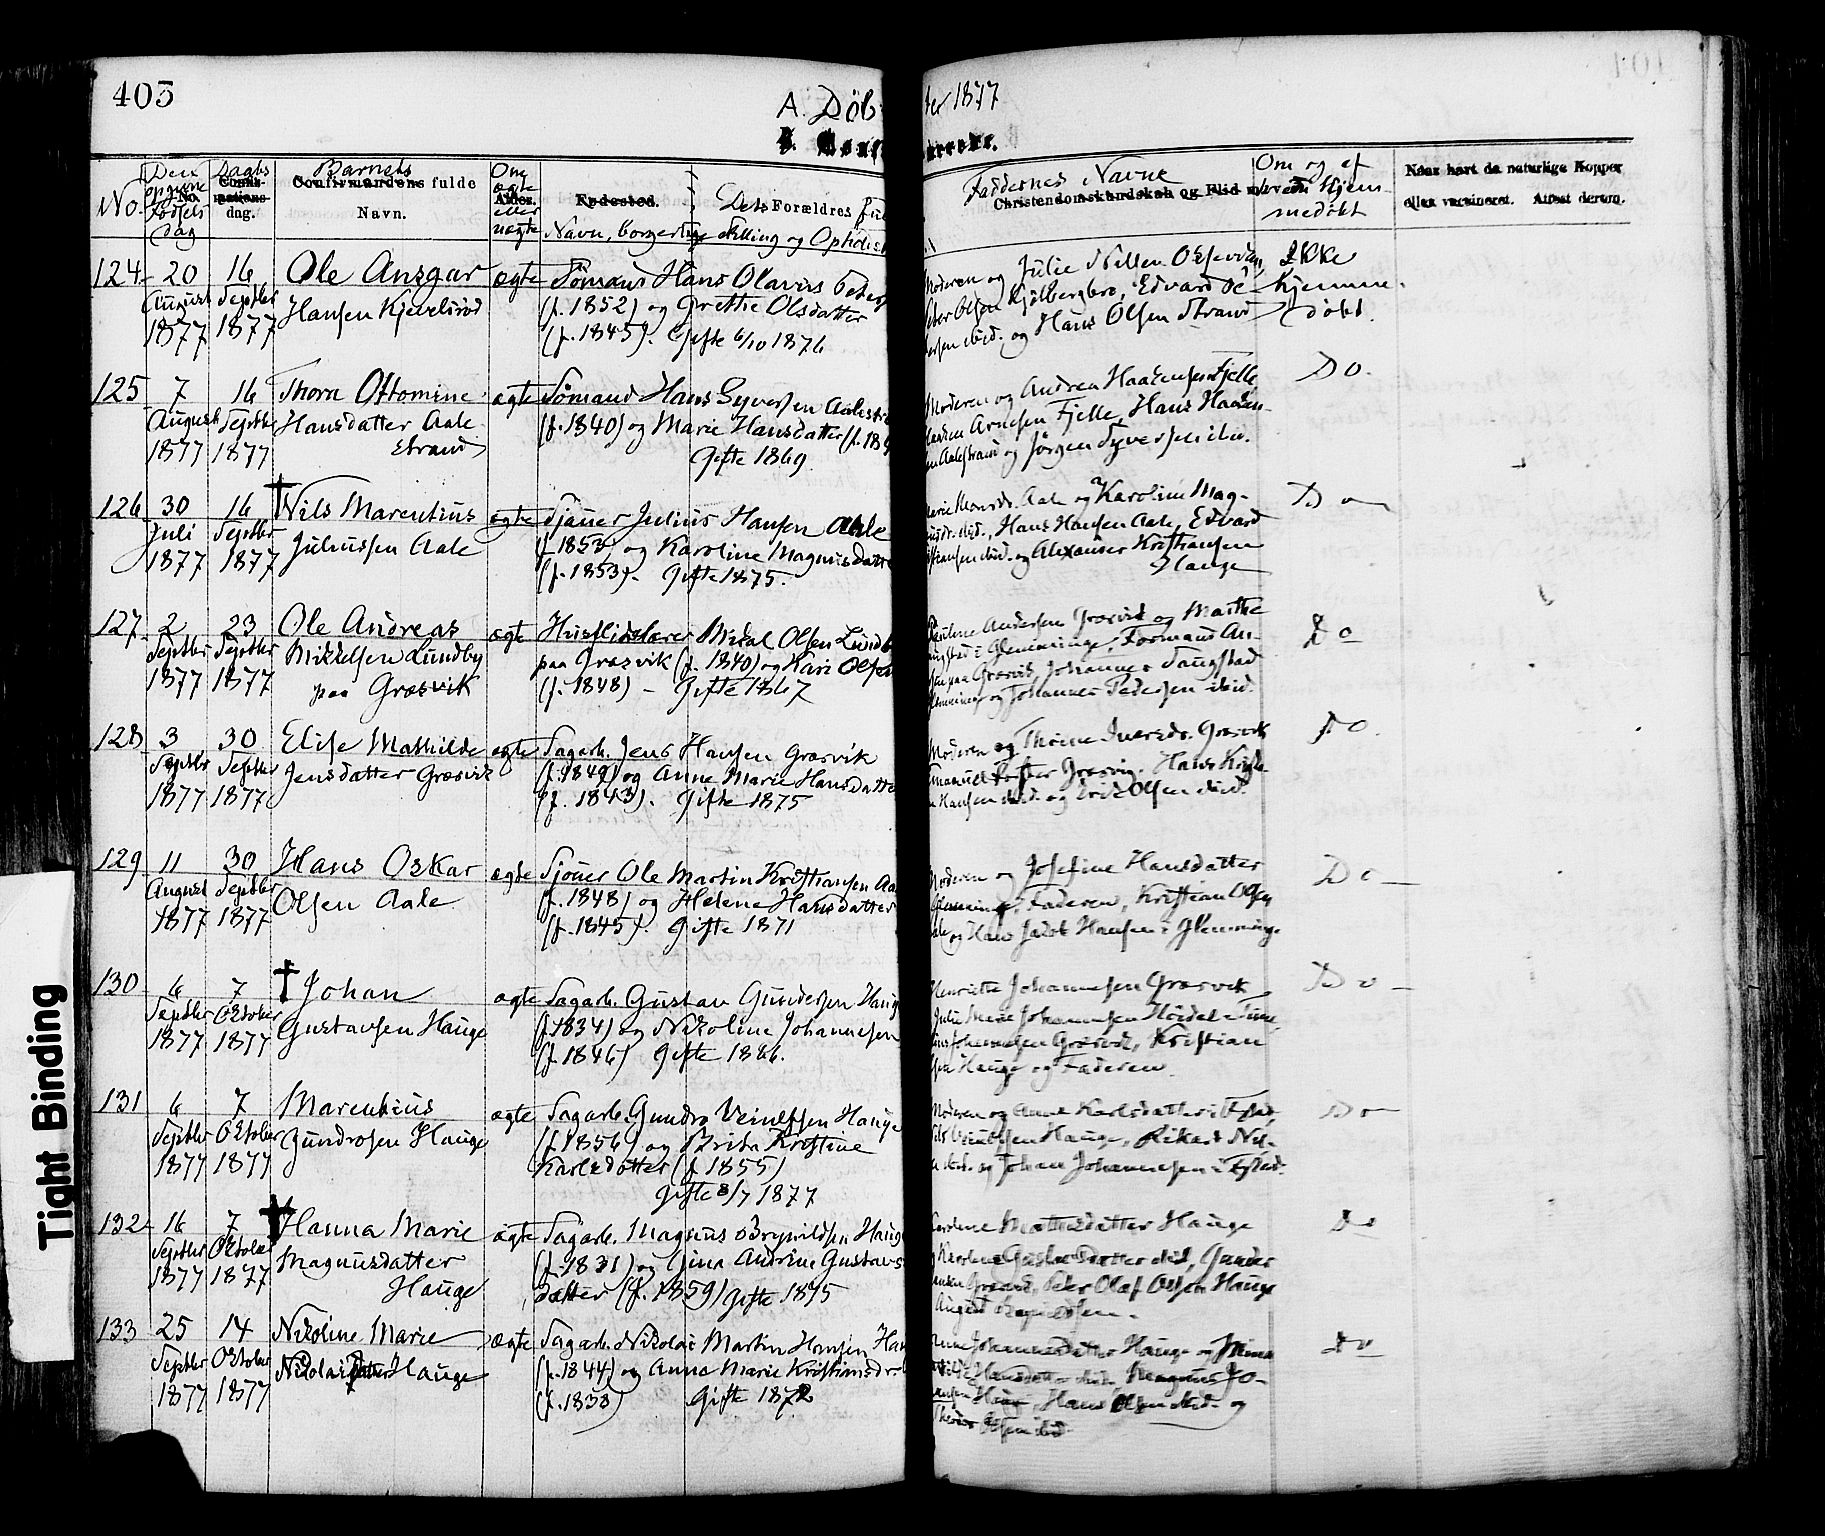 403
A. Döb
ter 1877
No.
Den opgivne Fødsels dag
Daabs dag.
Barnets fulde
Navn.
Om ægte eller uægte
Fødested.
Dets Forældres
Navn, borgerlige Stilling og Opholdst
Faddernes Navne
Christendomskundskab og Flid
Om og af hvem Hjemmedøbt
Naar havt de naturlige Kopper
eller vaccineret. Attest derom.
124 20 16 Ole Ansgar ægte Sømand Hans Olavus Peders
August Septbr Hansen Kjevelsrød (f. 1852) og Grethe Olsdatter
1877 1877 (f. 1845). Gifte 6/10 1876
Moderen og Julie Nilsen
Peter Olsen Kjølbergbro, Edvard
ibid. og Hans Olsen Strand
Ikke
hjemme
døbt.
125 7 16 Thora Ottomine ægte Sømand Hans Syversen Aalestr
August Septbr Hansdatter Aale (f. 1840) og Marie Hansdatter (f. 184
1877 1877 strand Gifte 1869
Moderen og Andrea Haakensen Fjelle
Arnesen Fjelle, Hans Haaken
Aalestrand og Jørgen Syversen ibid.
Do.
126 30 16 † Nils Marentius ægte Sjouer Julius Hansen Aale
Juli Septbr Juliussen Aale (f. 1853) og Karoline Magnusdatte
1877 1877 (f. 1853). Gifte 1875.
Aale og Karoline Mag-
ibid., Hans Hansen Aale, Edvard
Kristiansen ibid. og Alexander Kristiansen
Hauge
Do
127 2 23 Ole Andreas ægte Huslidslærer Mikal Olsen Lundb
Septbr Septbr Mikkelsen Lundby paa Græsvik (f. 1840) og Kari Olsen
1877 1877 paa Græsvik (f. 1848) – Gifte 1867
Pauline Andersen Græsvik og Marthe
i Glemminge, Formand An-
paa Græsvik, Johannes Taugstad
og Johannes Pedersen ibid.
Do
128 3 30 Elise Mathilde ægte Sagarb. Jens Hansen Græsvik
Septbr Septbr Jensdatter Græsvik (f. 1849) og Anne Marie Hansdatte
1877 1877 (f. 1843). Gifte 1875
Moderen og Thrine Iversdr. Græsvik
Emanuel Græsvig. Hans Krist
Hansen ibid. og Erik Olsen ibid.
Do.
129 11 30 Hans Oskar ægte Sjouer Ole Martin Kristiansen Aa
August Septbr Olsen Aale (f. 1848) og Helene Hansdatter
1877 1877 (f. 1845). Gifte 1871
Moderen og Josefine Hansdatter
Glemminge, Faderen, Kristian Olsen
og Hans Jacob Hansen i Glemminge
Do
130 6 7 † Johan ægte Sagarb. Gustav Gundersen Haug
Septbr Oktober Gustavsen Hauge (f. 1834) og Nikoline Johannesen
1877 1877 (f. 1846) Gifte 1866.
Henriette Johannesen Græsvik
Julie Marie Johannesen
Johannesen Græsvik, Kristian
Hauge og Faderen
Do
131 6 7 Marentius ægte Sagarb. Gundro Hauge
Septbr Oktober Gundrosen Hauge (f. 1856) og Brita Kristine
1877 1877 Karlsdotter (f. 1855)
Gifte 8/7 1877
Moderen og Anne Karlsdatter i
Hauge, Rikard
ibid. og Johan Johannesen i
Do
132 16 7 † Hanna Marie ægte Sagarb. Magnus Brynildsen Haug
Septbr Oktober Magnusdatter (f. 1831) og Gina Andrine Gustavs
1877 1877 Hauge datter (f. 1859) Gifte 1875
Mathisdatter Hauge
Karoline Gustavsdatter ibid, Gunder
Peter Olaf Olsen Hauge
August
Do
133 25 14 Nikoline Marie ægte Sagarb. Nikolai Martin Hansen Hau
Septbr Oktober Nikolaidatter Hauge (f. 1844) og Anna Marie Kristiansdr.
1877 1877 (f. 1838) Gifte 1872
Johannesdatter Hauge og Mina
Hansdatter ibid. Magnus Jo-
Hauge, Hans Olsen ibid. og
Olsen ibid.
Do
Tight Binding